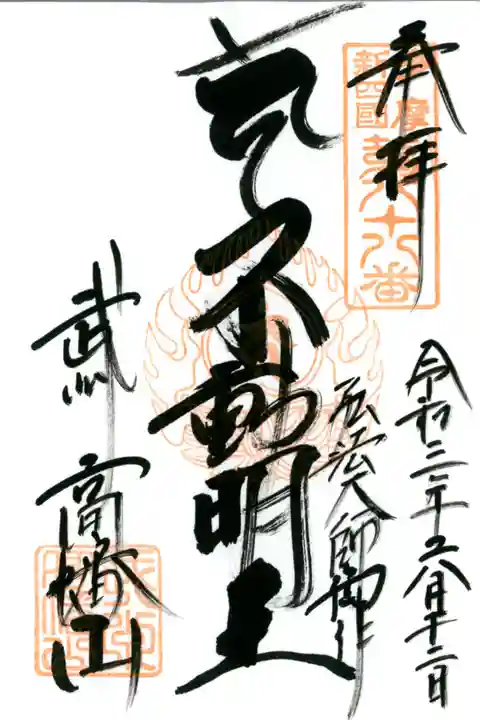 奉拝
新四國
多摩
第八十八番
令和三年六月十二日
弘法大師御作
不動明王
武州 高幡山